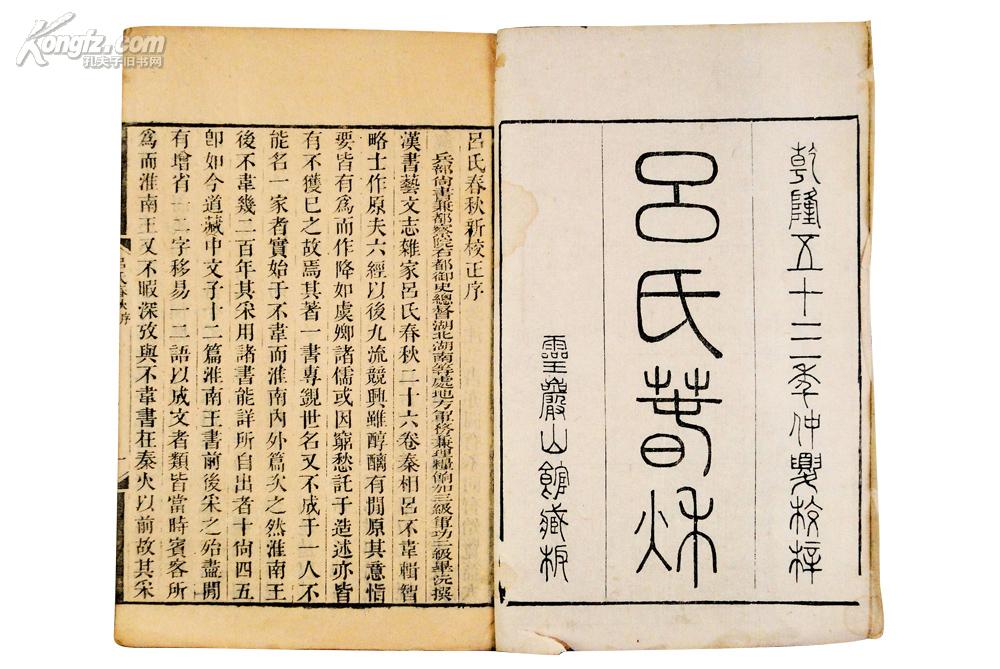 Kongfz.com
孔夫子旧书网
乾隆五十三年仲夏校梓
呂氏春秋
靈巖山館藏板
呂氏春秋新校正序
兵部尚書兼都察院右都御史總督湖北湖南等處地方軍務兼理糧餉加三級軍功三級畢沅撰
漢書藝文志雜家呂氏春秋二十六卷秦相呂不韋輯智
略士作原夫六經以後九流競興雖醇醨有閒原其意恉
要皆有爲而作降如虞卿諸儒或因窮愁託于造述亦皆
有不獲已之故焉其著一書專覬世名又不成于一人不
能名一家者實始于不韋而淮南內外篇次之然淮南王
後不韋幾二百年其采用諸書能詳所自出者十尙四五
卽如今道藏中文子十二篇淮南王書前後采之殆盡閒
有增省一二字移易一二語以成文者類皆當時賓客所
爲而淮南王又不暇深攷與不韋書在秦火以前故其采
呂氏春秋序
一